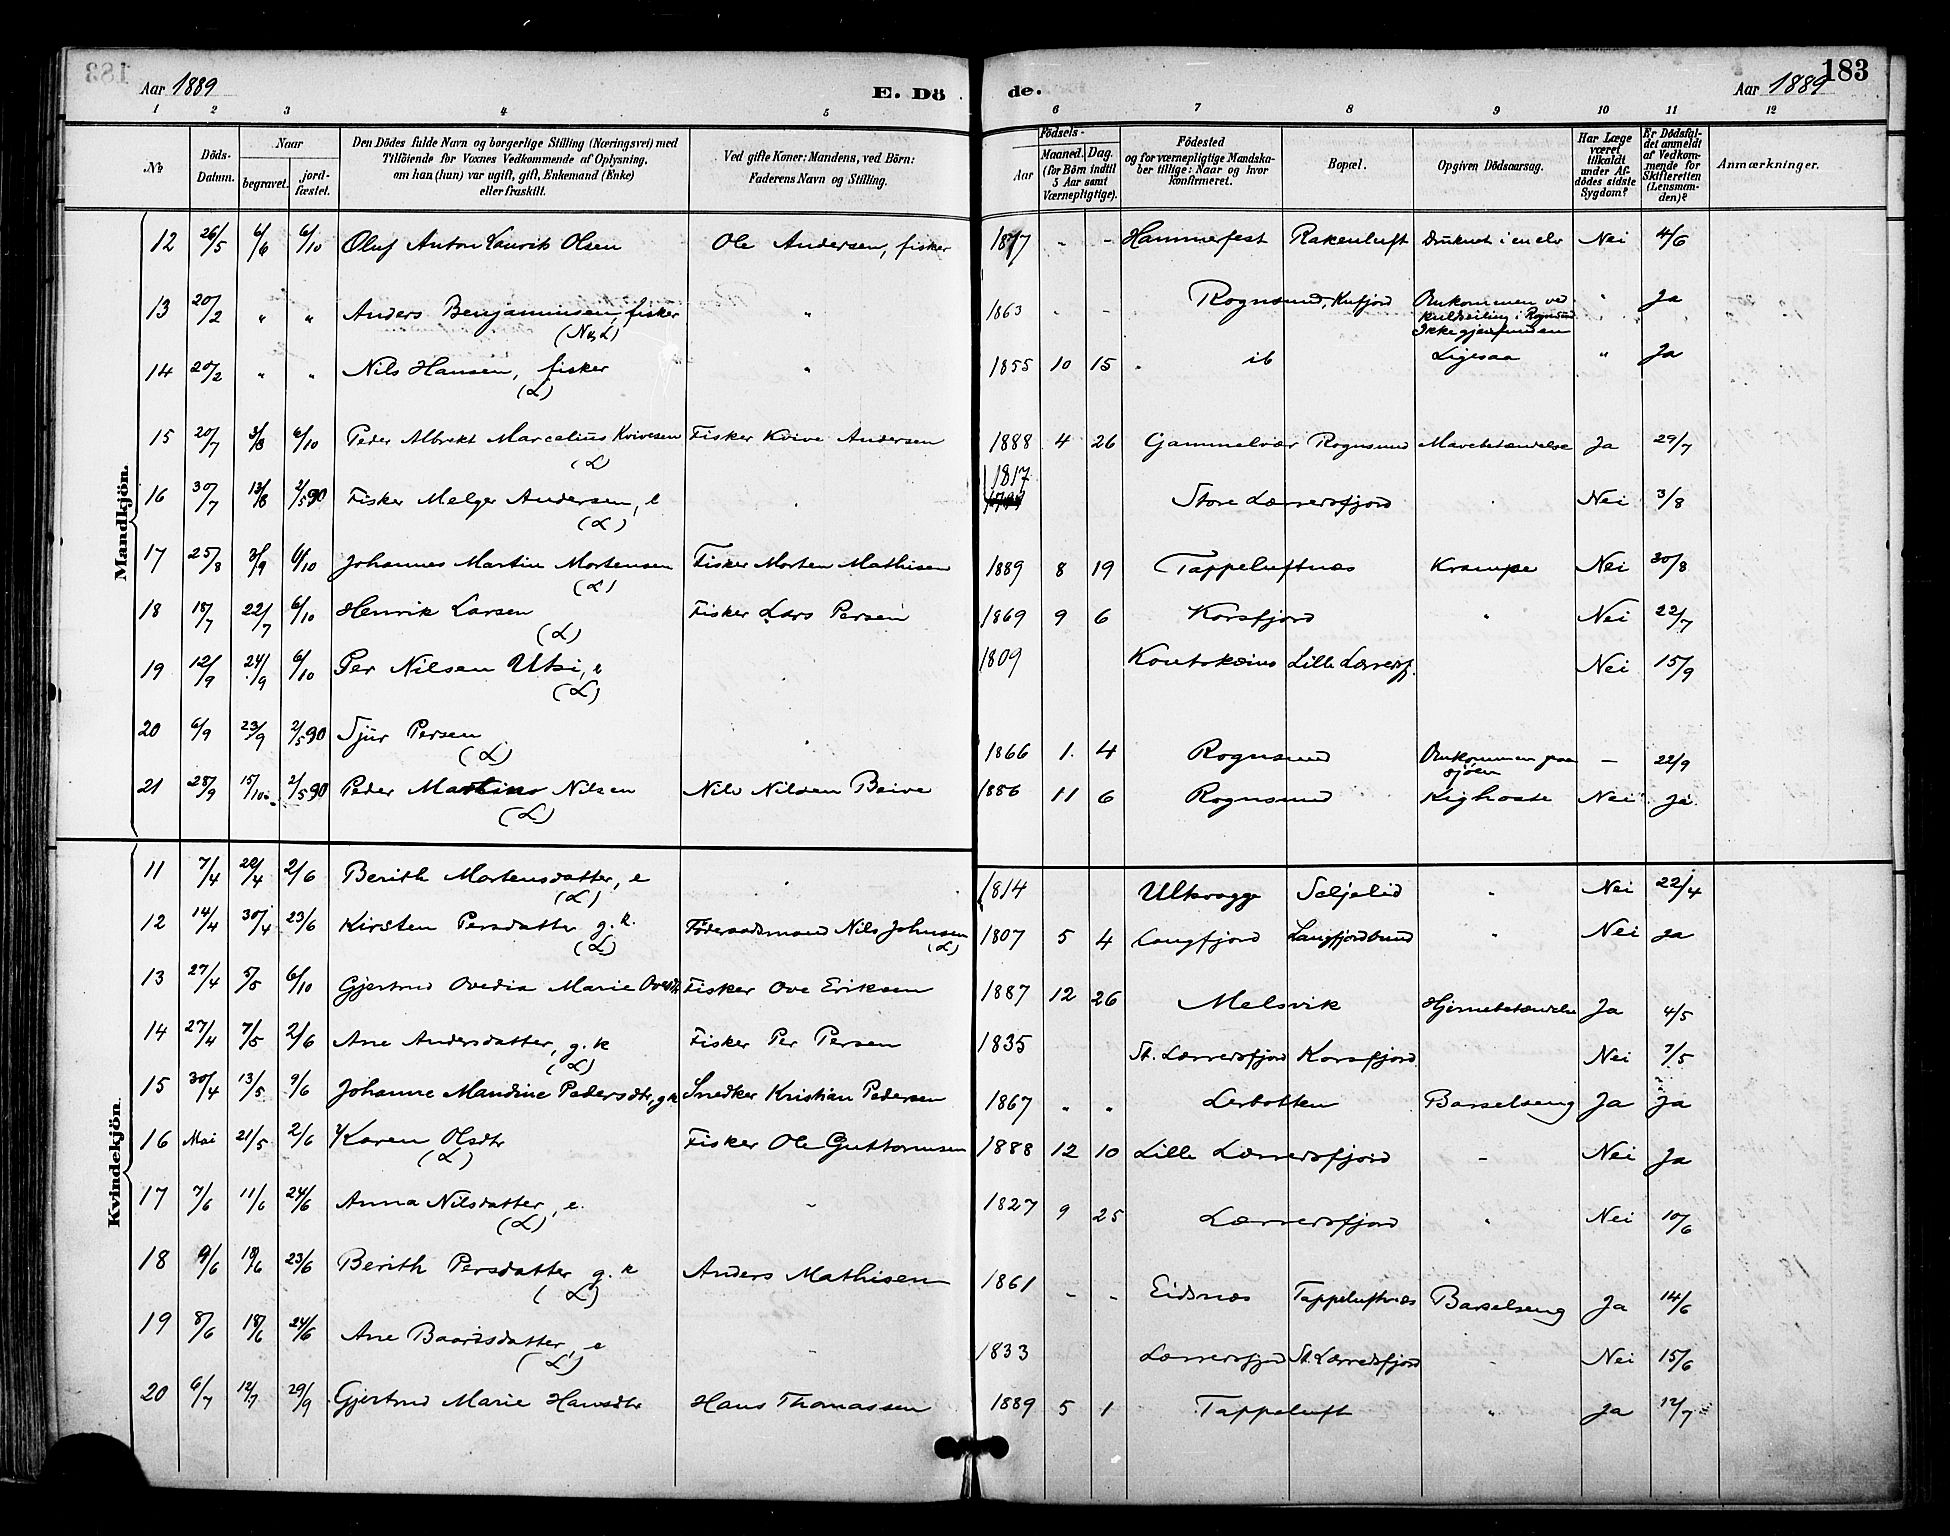 183
Aar 1889
E. Döde.
Aar 1889
1 2 3 4 5 6 7 8 9 10 11 12
No.
Döds-Datum.
Naar
begravet.
jordfæstet.
Den Dödes fulde Navn og borgerlige Stilling (Næringsvei) med
Tilföiende for Voxnes Vedkommende af Oplysning,
om han (hun) var ugift, gift, Enkemand (Enke)
eller fraskilt.
Ved gifte Koner: Mandens, ved Börn:
Faderens Navn og Stilling.
Födsels-
Aar
Maaned. Dag.
(for Börn indtil
5 Aar samt
Værnepligtige).
Födested
og for værnepligtige Mandskaber tillige: Naar og hvor
konfirmeret.
Bopæl.
Opgiven Dödsaarsag.
Har Læge
været
tilkaldt
under Afdödes sidste
Sygdom?
Er Dödsfaldet anmeldt
af Vedkommende for
Skifteretten
(Lensmanden)?
Anmærkninger.
Mandkjön.
12 26/5 6/6 6/10 Oluf Anton Laurik Olsen Ole Andersen, fisker 1877 - - Hammerfest Rakenluft Druknet i en elv Nei 4/6
13 20/2 " " Anders Benjaminsen, fisker " 1863 - - Rognsund, Kufjord Omkommen ved Ja
(N, L) kulseiling i Rognsund
Ikke gjenfunden
14 20/2 " " Nils Hansen, fisker " 1855 10 15 ib Ligesaa " Ja
(L)
15 20/7 3/8 6/10 Peder Albrekt Marcelius Kvivesen Fisker Kvive Andersen 1888 4 26 Gammelvær Rognsund Mavebetændelse Ja 29/7
(L)
16 30/7 13/8 2/5 90 Fisker Melger Andersen, e 1817 Store Lærresfjord Nei 3/8
(L)
17 25/8 3/9 6/10 Johannes Martin Mortensen Fisker Morten Mathisen 1889 8 19 Tappeluftnæs Krampe Nei 30/8
(L)
18 18/7 22/7 6/10 Henrik Larsen Fisker Lars Persen 1869 9 6 Korsfjord " Nei 22/7
(L)
19 12/9 24/9 6/10 Per Nilsen Utsi, e 1809 Koutokeino Lille Lærresf. Nei 15/9
(L)
20 6/9 23/9 2/5 90 Sjur Persen 1866 1 4 Rognsund Omkommen paa — 22/9
(L) sjöen
21 28/9 15/10 2/5 90 Peder Martino Nilsen Nils Nilsen Beive 1886 11 6 Rognsund Kighoste Nei Ja
(L)
Kvindekjön
11 7/4 22/4 2/6 Berith Mortensdatter, e 1814 Ulkvagge Saljelid " Nei 22/4
(L)
12 14/4 30/4 23/6 Kirsten Persdatter g. k. Föderaadsmand Nils Johnsen 1807 5 4 Langfjord Langfjordbund " Nei Ja
(L) (L)
13 27/4 5/5 6/10 Gjertrud Ovedia Marie Ovedtr Fisker Ove Eriksen 1887 12 26 Melsvik Hjernebetændelse Ja 4/5
14 27/4 7/5 2/6 Ane Andersdatter, g. k Fisker Per Persen 1835 St. Lærresfjord Korsfjord Nei 7/5
(L)
15 30/4 13/5 9/6 Johanne Mandine Pedersdtr, g k Snedker Kristian Pedersen 1867 " " Lerbotten Barselseng Ja Ja
16 Mai 21/5 2/6 Karen Olsdtr Fisker Ole Guttormsen 1888 12 10 Lille Lærresfjord - Nei Ja
(L)
17 7/6 11/6 24/6 Anna Nilsdatter, e. 1827 9 25 Lærresfjord " Nei 10/6
(L)
18 9/6 18/6 23/6 Berith Persdatter g. k Anders Mathisen 1861 - - Eidsnæs Tappeluftnæs Barselseng Ja 14/6
(L)
19 8/6 18/6 24/6 Ane Baardsdatter, e 1833 Lærresfjord St. Lærresfjord Nei 15/6
(L)
20 6/7 12/7 29/9 Gjertrud Marie Hansdtr Hans Thomassen 1889 5 1 Tappeluft " Ja 12/7